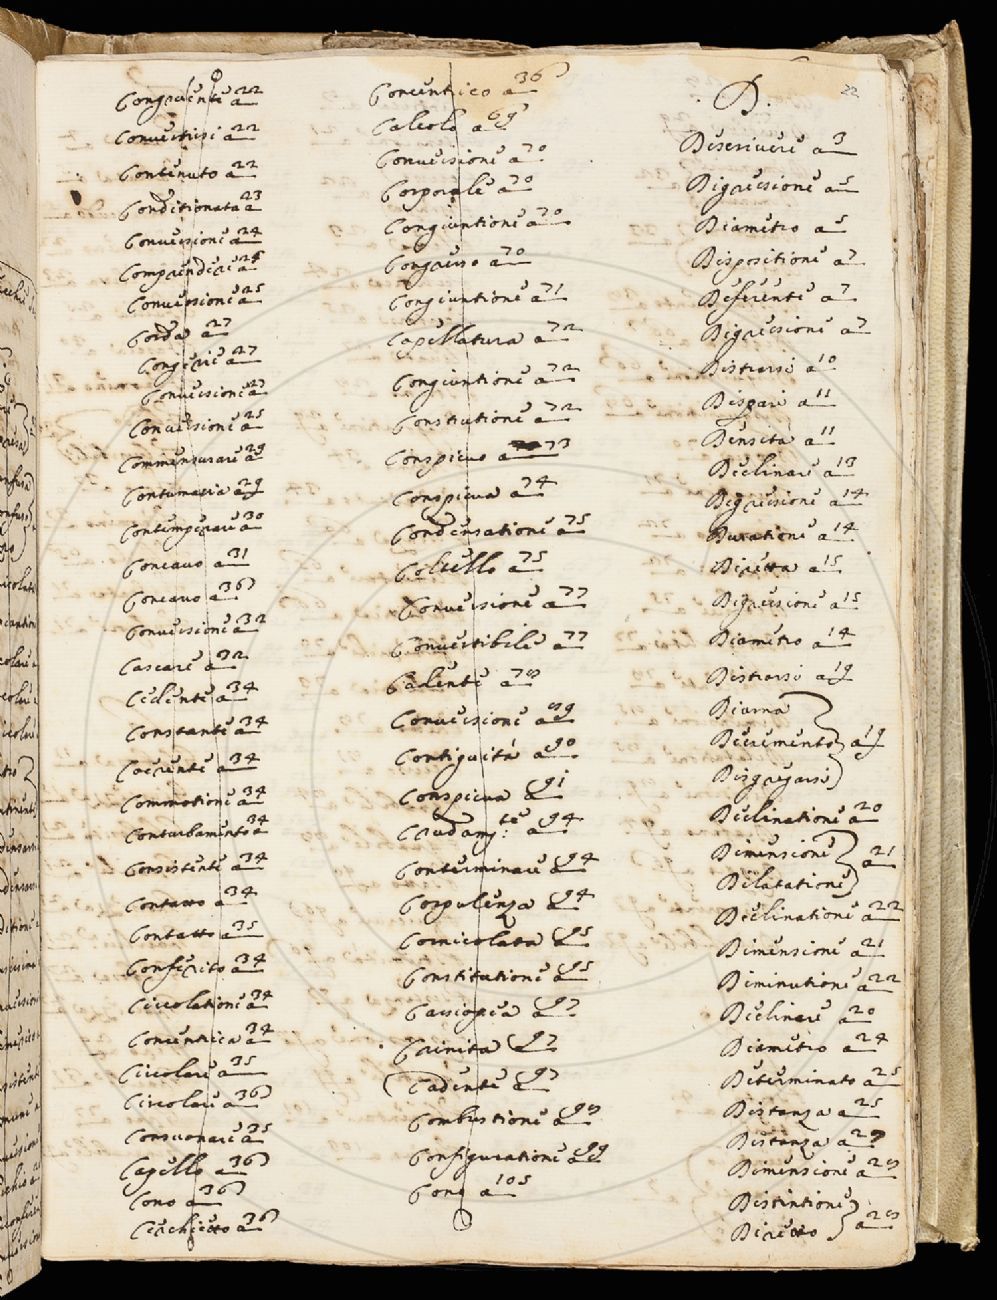 Congruente a 22
Convertirsi a 22
Contenuto a 22
Conditionata a 23
Conversione a 24
Comprendere a 25
Conversione a 25
Corda a 27
Congerie a 27
Conversione a 27
Conversione a 25
Commensurare a 29
Contumacia a 29
Contemperare a 30
Concavo a 31
Concavo a 36
Conversione a 32
Cascare a 32
Celente a 34
Constante a 34
Coerente a 34
Commotione a 34
Conturbamento a 34
Consistente a 34
Contatto a 34
Contatto a 35
Conferito a 34
Circolatione a 34
Concentrica a 34
Circolare a 35
Circolare a 36
Consuonare a 35
Capello a 36
Cono a 36
Cerchietto a 36
Concentrico a 36
Calcolo a 69
Conversione a 70
Corporale a 70
Congiuntione a 70
Congresso a 70
Congiuntione a 71
Capellatura a 72
Congiuntione a 72
Constitutione a 72
Conspicuo a 73
Conspicua a 74
Condensatione a 75
Coltello a 75
Conversione a 77
Convertibile a 77
Cadente a 78
Conversione a 89
Contiguità a 90
Conspicua a 91
Crudamte: a 94
Conterminare a 94
Corpulenza a 94
Cornicolata a 95
Constitutione a 95
Cassiopea a 97
Crinita a 97
Cadente a 97
Combustione a 98
Configuratione a 99
Cono a 105
22
.D.
Descrivere a 3
Digressione a 5
Diametro a 5
Dispositione a 7
Deferente a 7
Digressione a 7
Distrarsi a 10
Dispari a 11
Densità a 11
Declinare a 13
Digressione a 14
Duratione a 14
Diretta a 15
Digressione a 15
Diametro a 14
Distrarsi a 19
Diurna
Decremento a 19
Disgregarsi
Declinatione a 20
Dimensione a 21
Dilatatione
Declinatione a 22
Dimensione a 21
Diminutione a 22
Declinare a 20
Diametro a 24
Determinato a 25
Distanza a 25
Distanza a 27
Dimensione a 28
Distintione
Diretto a 28